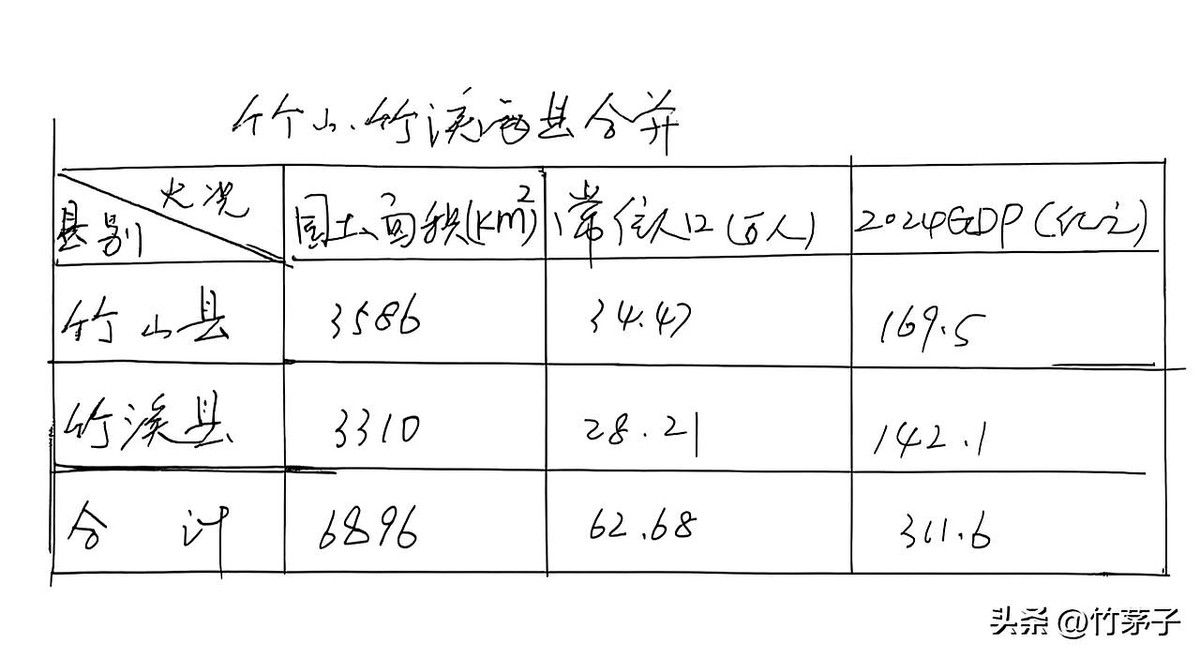 竹山、竹溪两县合并
状况
县别
国土面积(km²)
常住人口(万人)
2024GDP(亿元)
竹山县 3586 34.47 169.5
竹溪县 3310 28.21 142.1
合计 6896 62.68 311.6
头条 @竹茅子